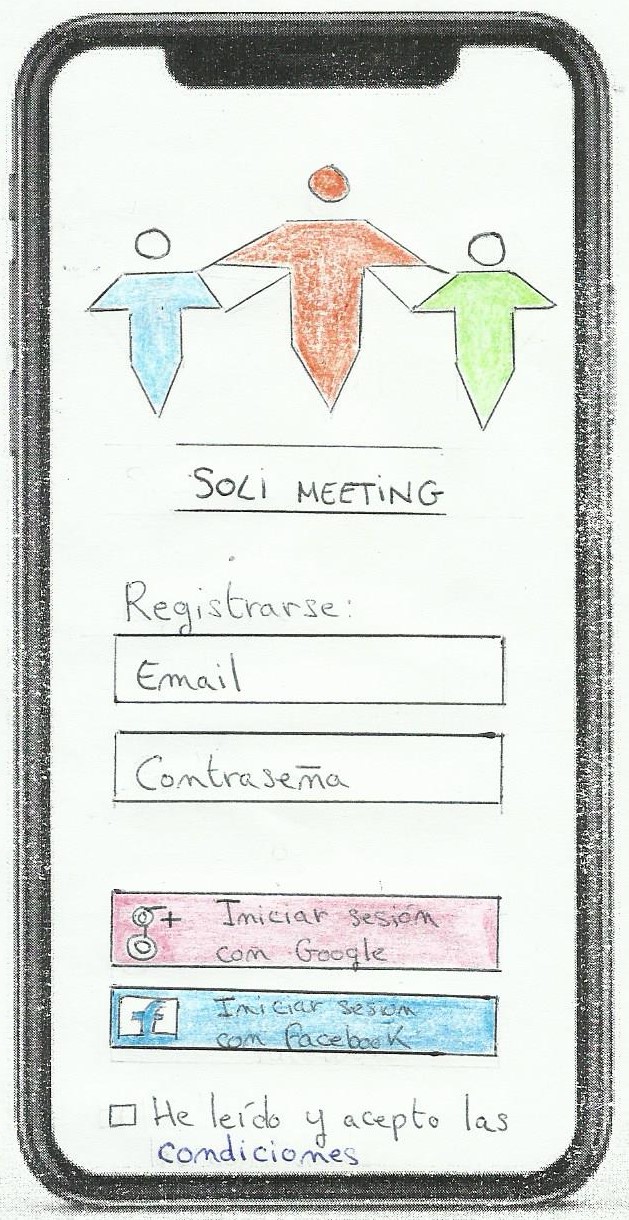 SOLI MEETING
Registrarse:
Email
Contraseña
g+ Iniciar sesión
con Google
f Iniciar sesión
con facebook
He leído y acepto las
condiciones